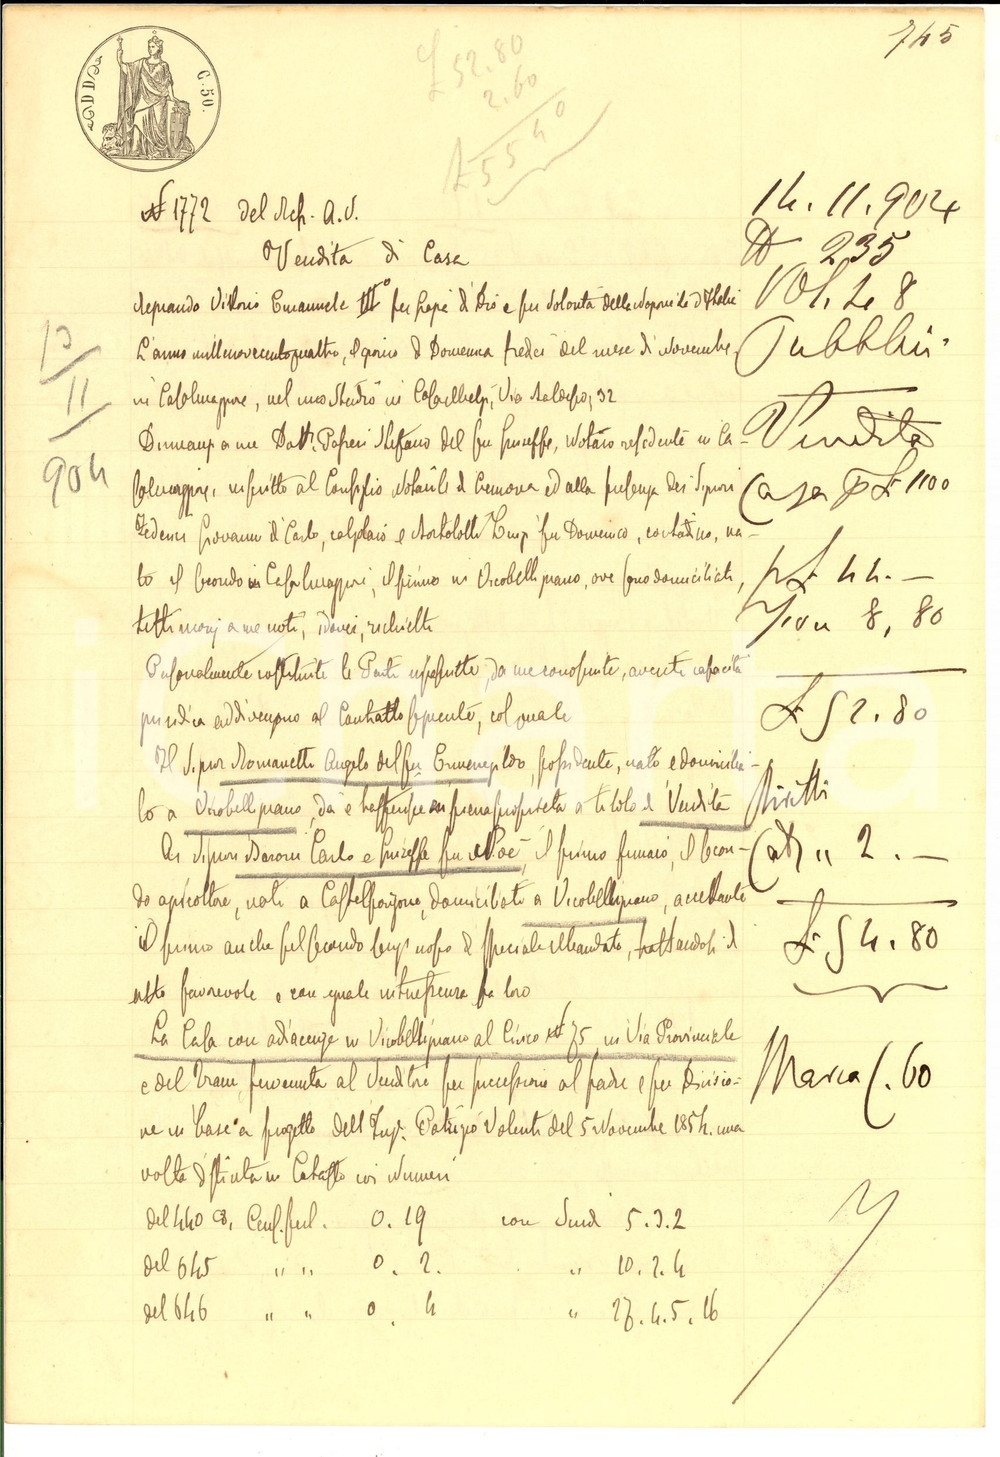 745
C. 50.
£ 52.80
2.60
£ 55 40
N 1772 del Rep. A. V.
Vendita di Casa
Regnando Vittorio Emanuele III° per grazia di Dio e per volontà della Nazione Re d'Italia
L'anno millenovecentoquattro, il giorno di Domenica tredici del mese di Novembre
in Casalmaggiore, nel mio Studio in Casa Via 32
Dinnanzi a me Dott. Stefano del fu Giuseppe, Notaio residente in Ca-
salmaggiore, inscritto al Consiglio Notarile di Cremona ed alla presenza dei Signori
Federici Giovanni di Carlo, calzolaio e Bortolotti Luigi fu Domenico, contadino, na-
to il secondo in Casalmaggiore, il primo in Vicobellignano, ove sono domiciliati,
testimonj a me noti, idonei, richiesti
Personalmente costituite le Parti infrascritte, da me conosciute, aventi capacità
giuridica addivengono al Contratto seguente, col quale
Il Signor Romanetti Angelo del fu Ermenegildo, possidente, nato e domicilia-
to a Vicobellignano, dà e trasferisce in piena proprietà a titolo di Vendita
Ai Signori Baroni Carlo e Giuseppe fu Noè, il primo funaio, il secon-
do agricoltore, nati a Castelponzone, domiciliati a Vicobellignano, accettante
il primo anche pel secondo benchè non di speciale Mandato, trattandosi di
atto favorevole e con eguale interessenza fra loro
La Casa con adiacenze in Vicobellignano al Civico N° 75 in Via Provinciale
e del Tram, pervenuta al Venditore per successione al padre e per Divisio-
ne in base a progetto dell'Ing. Patrizio Valenti del 5 Novembre 1854. una
volta distinta in Catasto coi Numeri
del 440 Cens. Pert. 0.19 con Scudi 5.3.2
del 645 " " 0. 2. " 10.2.4
del 646 " " 0. 4 " 27.4.5.16
13
11
904
14.11.904
N 235
Vol. 48
Pubblici
Vendita
Casa p £ 1100
p £ 44.—
8,80
£ 52.80
Diritti
Cat. " 2.—
£ 54.80
Marca C. 60